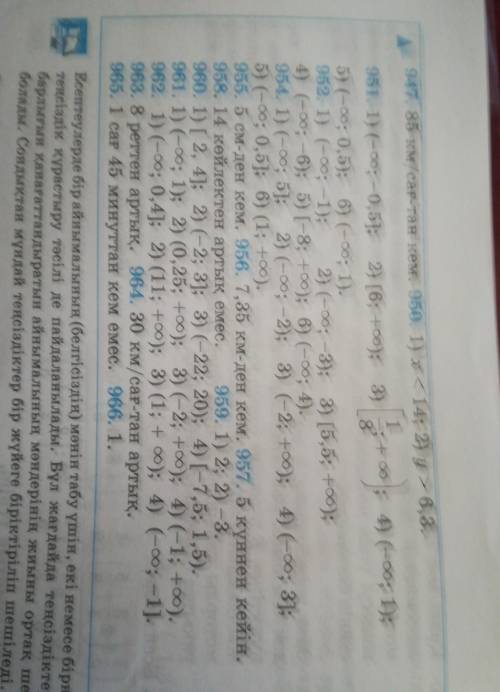 947. 85 км/сағ-тан кем. 950. 1) x < 14; 2) y > 6,3.
951. 1) (−∞; −0,5]; 2) [6; +∞); 3) [1/8; +∞); 4) (−∞; 1);
5) (−∞; 0,5); 6) (−∞; 1).
952. 1) (−∞; −1); 2) (−∞; −3); 3) [5,5; +∞);
4) (−∞; −6); 5) [−8; +∞); 6) (−∞; 4).
954. 1) (−∞; 5]; 2) (−∞; −2); 3) (−2; +∞); 4) (−∞; 3];
5) (−∞; 0,5]; 6) (1; +∞).
955. 5 см-ден кем. 956. 7,35 км-ден кем. 957. 5 күннен кейін.
958. 14 көйлектен артық емес. 959. 1) 2; 2) −3.
960. 1) [2, 4]; 2) (−2; 3]; 3) (−22; 20); 4) [−7,5; 1,5).
961. 1) (−∞; 1); 2) (0,25; +∞); 3) (−2; +∞); 4) (−1; +∞).
962. 1) (−∞; 0,4]; 2) (11; +∞); 3) (1; + ∞); 4) (−∞; −1].
963. 8 реттен артық. 964. 30 км/сағ-тан артық.
965. 1 сағ 45 минуттан кем емес. 966. 1.
Есептеулерде бір айнымалының (белгісіздің) мәнін табу үшін, екі немесе бірн
теңсіздік құрастыру тәсілі де пайдаланылады. Бұл жағдайда теңсіздікте
барлығын қанағаттандыратын айнымалының мәндерінің жиыны ортақ ше
болады. Сондықтан мұндай теңсіздіктер бір жүйеге біріктіріліп шешіледі.